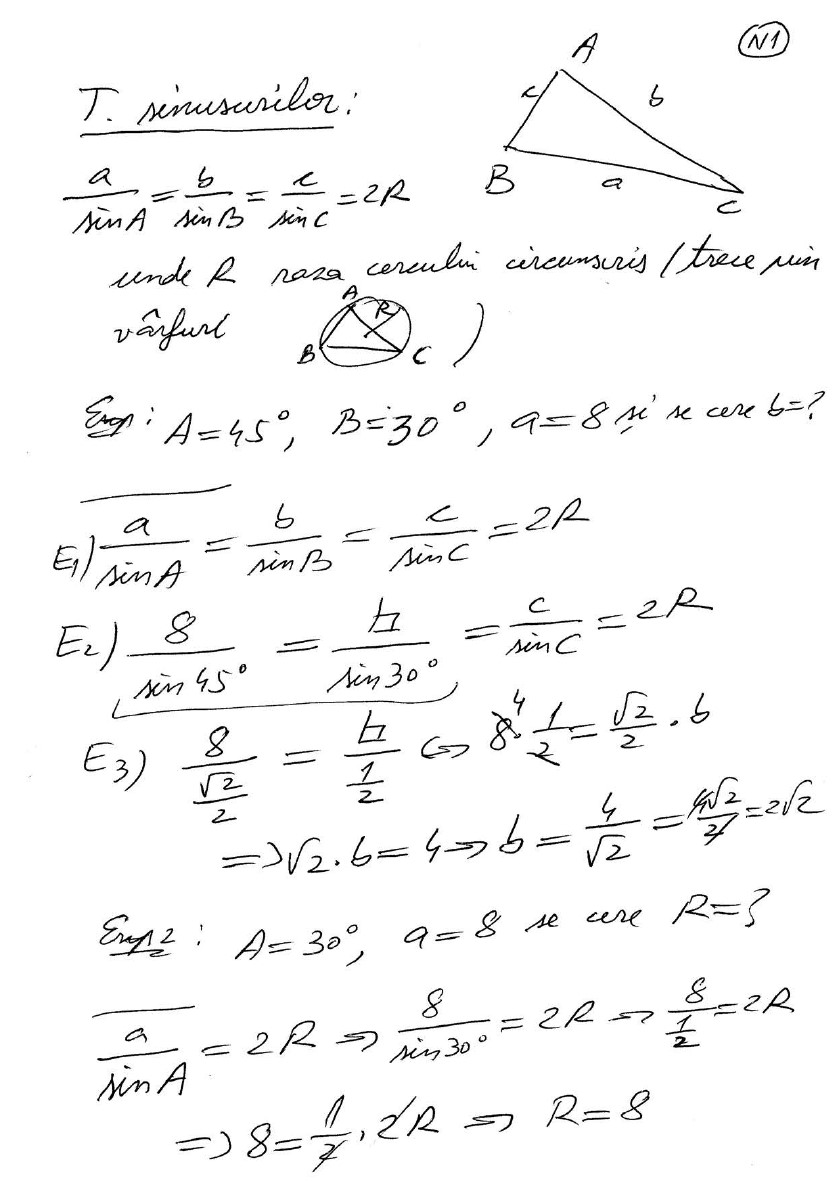 N1
T. sinusurilor:
A
c
b
B
a
C
a/sinA = b/sinB = c/sinC = 2R
unde R raza cercului circumscris (trece prin
vârfuri
A
R
B
C
)
Exp: A=45°, B=30°, a=8 și se cere b=?
E1) a/sinA = b/sinB = c/sinC = 2R
E2) 8/sin45° = b/sin30° = c/sinC = 2R
E3) 8/(√2/2) = b/(1/2) ⇔ 8 4 · 1/2 = √2/2 · b
=> √2·b=4 => b = 4/√2 = 4√2/2 = 2√2
Exp2: A=30°, a=8 se cere R=?
a/sinA = 2R => 8/sin30° = 2R => 8/(1/2) = 2R
=> 8 = 1/2 · 2R => R=8